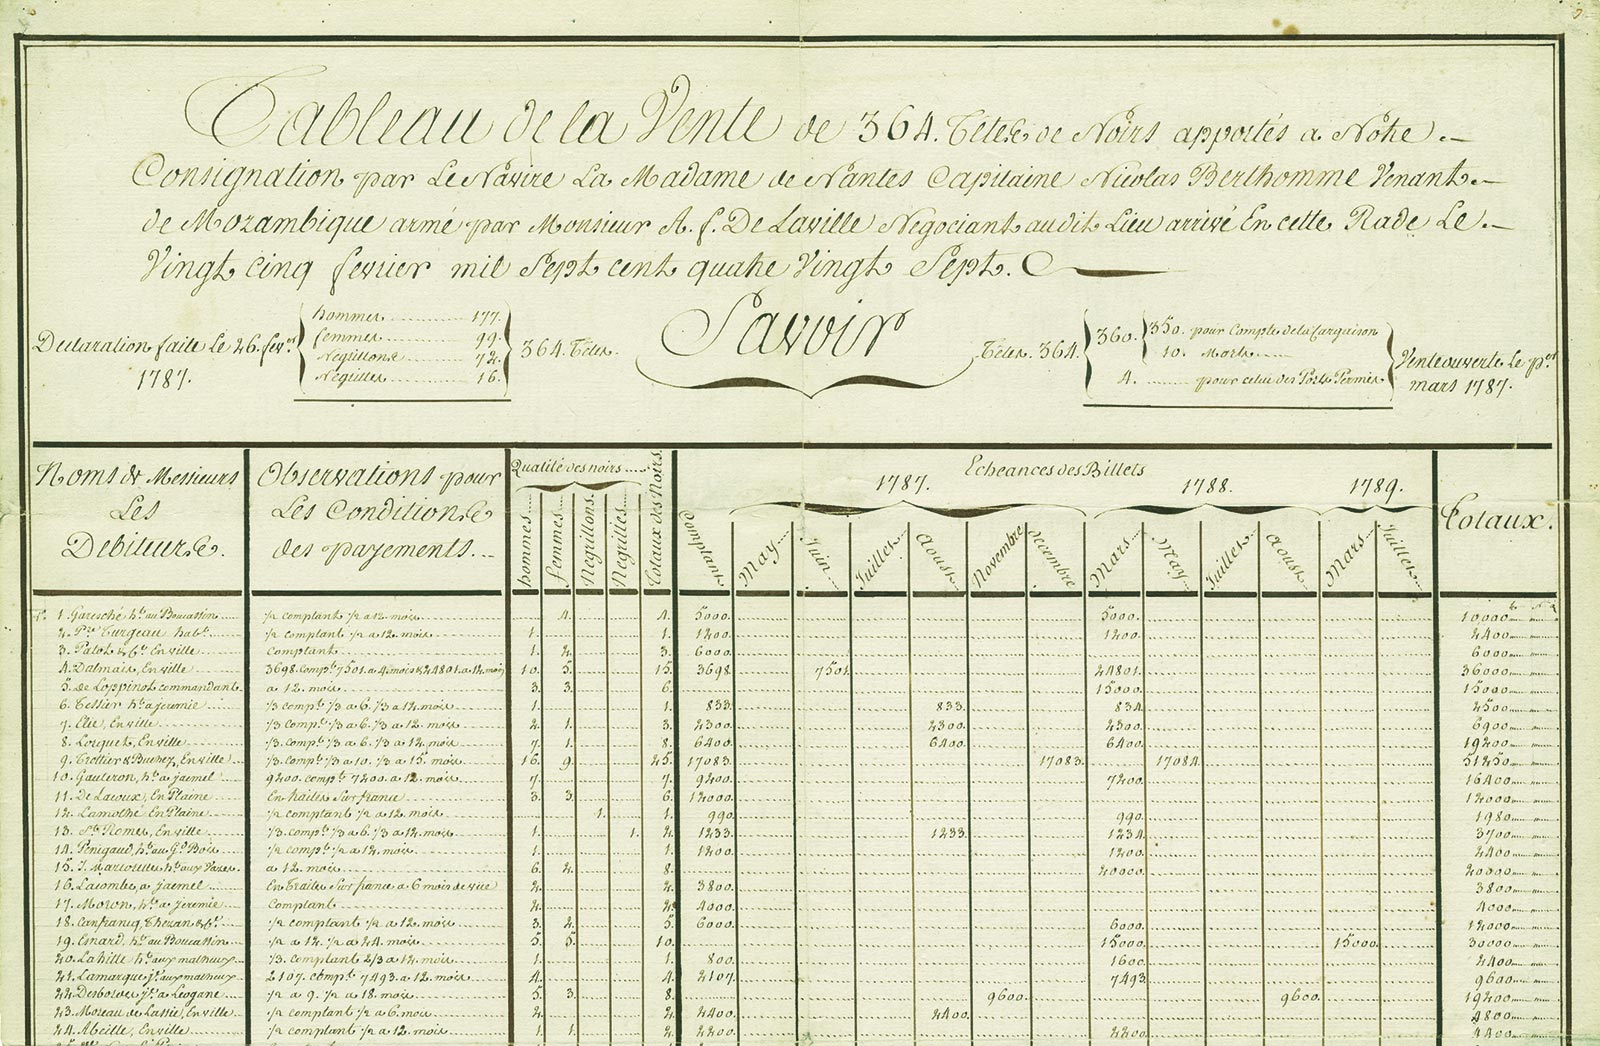 Tableau de la Vente de 364. Têtes de Noirs apportés a Notre
Consignation par Le Navire La Madame de Nantes Capitaine Nicolas Berthomme Venant
de Mozambique armé par Monsieur A. f. De Laville Negociant audit Lieu arrivé En cette Rade Le
Vingt cinq fevrier mil Sept cent quatre Vingt Sept.
Savoir
Declaration faite Le 26. fever 1787.
hommes 177.
femmes 99.
Negillons 72.
Negilles 16.
364. Têtes.
Têtes. 364.
360.
350. pour Compte de la Cargaison
10. Morts
4. pour celui des Ports Permis
Vente ouverte Le per mars 1787.
Noms de Messieurs Les Debiteurs.
Observations pour Les Conditions des payements.
Qualité des noirs
hommes
femmes
Negillons
Negilles
Totaux des Noirs
Echeances des Billets
1787. 1788. 1789.
Comptant
May
Juin
Juillet
Aoust
Novembre
decembre
Mars
May
Juillet
Aoust
Mars
Juillet
Totaux.
1. Garesché ht. au Boucassin ½ comptant ½ a 12. mois 4. 4. 5000. 5000. 10000
2. Turgeau habt. ½ comptant ½ a 12. mois 1. 1. 1200. 1200. 2400
3. En ville Comptant 1. 2. 3. 6000. 6000
4. Dalmais, En ville 3698. compt. 7501. a 4. mois & 24801. a 12. mois 10. 5. 15. 3698. 7501. 24801. 36000
5. De Loppinot commandant a 12. mois 3. 3. 6. 15000. 15000
6. Tessier ht. a Jeremie ⅓ compt. ⅓ a 6. ⅓ a 12. mois 1. 1. 833. 833. 834. 2500
7. Elie, En ville ⅓ compt. ⅓ a 6. ⅓ a 12. mois 2. 1. 3. 2300. 2300. 2300. 6900
8. Lorquet, En ville ⅓ compt. ⅓ a 6. ⅓ a 12. mois 7. 1. 8. 6400. 6400. 6400. 19200
9. Trottier & En ville ⅓ compt. ⅓ a 10. ⅓ a 15. mois 16. 9. 25. 17083. 17083. 17084. 51250
10. Gauteron, ht. a jacmel 9200. compt. 7200. a 12. mois 7. 7. 9200. 7200. 16400
11. De Lacoux, En Plaine En traites Sur france 3. 3. 6. 12000. 12000
12. Lamothe En Plaine ½ comptant ½ a 12. mois 1. 1. 990. 990. 1980
13. St. Romes, En ville ⅓ compt. ⅓ a 6. ⅓ a 12. mois 1. 1. 2. 1233. 1233. 1234. 3700
14. Penigaud, ht. au Gd. Bois ½ compt. ½ a 12. mois 1. 1. 1200. 1200. 2400
15. J. ht. aux a 12. mois 6. 2. 8. 20000. 20000
16. Lacombe, a jacmel En Traites Sur france a 6 mois de vue 2. 2. 3800. 3800
17. Moron, ht. a Jeremie Comptant 2. 2. 4000. 4000
18. ½ comptant ½ a 12. mois 3. 2. 5. 6000. 6000. 12000
19. Esnard, ht. au Boucassin ½ a 12. ½ a 24. mois 5. 5. 10. 15000. 15000. 30000
20. Lahille ht. aux matheux ⅓. comptant 2/3 a 12. mois 1. 1. 800. 1600. 2400
21. Lamarque jne. aux matheux 2107. compt. 7493. a 12. mois 4. 4. 2107. 7493. 9600
22. Desbordes a Leogane ½ a 9. ½ a 18. mois 5. 3. 8. 9600. 9600. 19200
23. Moreau de Lassie, En ville ½ comptant ½ a 6. mois 2. 2. 2400. 2400. 4800
24. Abeille, En ville ½ comptant ½ a 12. mois 1. 1. 2. 2200. 2200. 4400